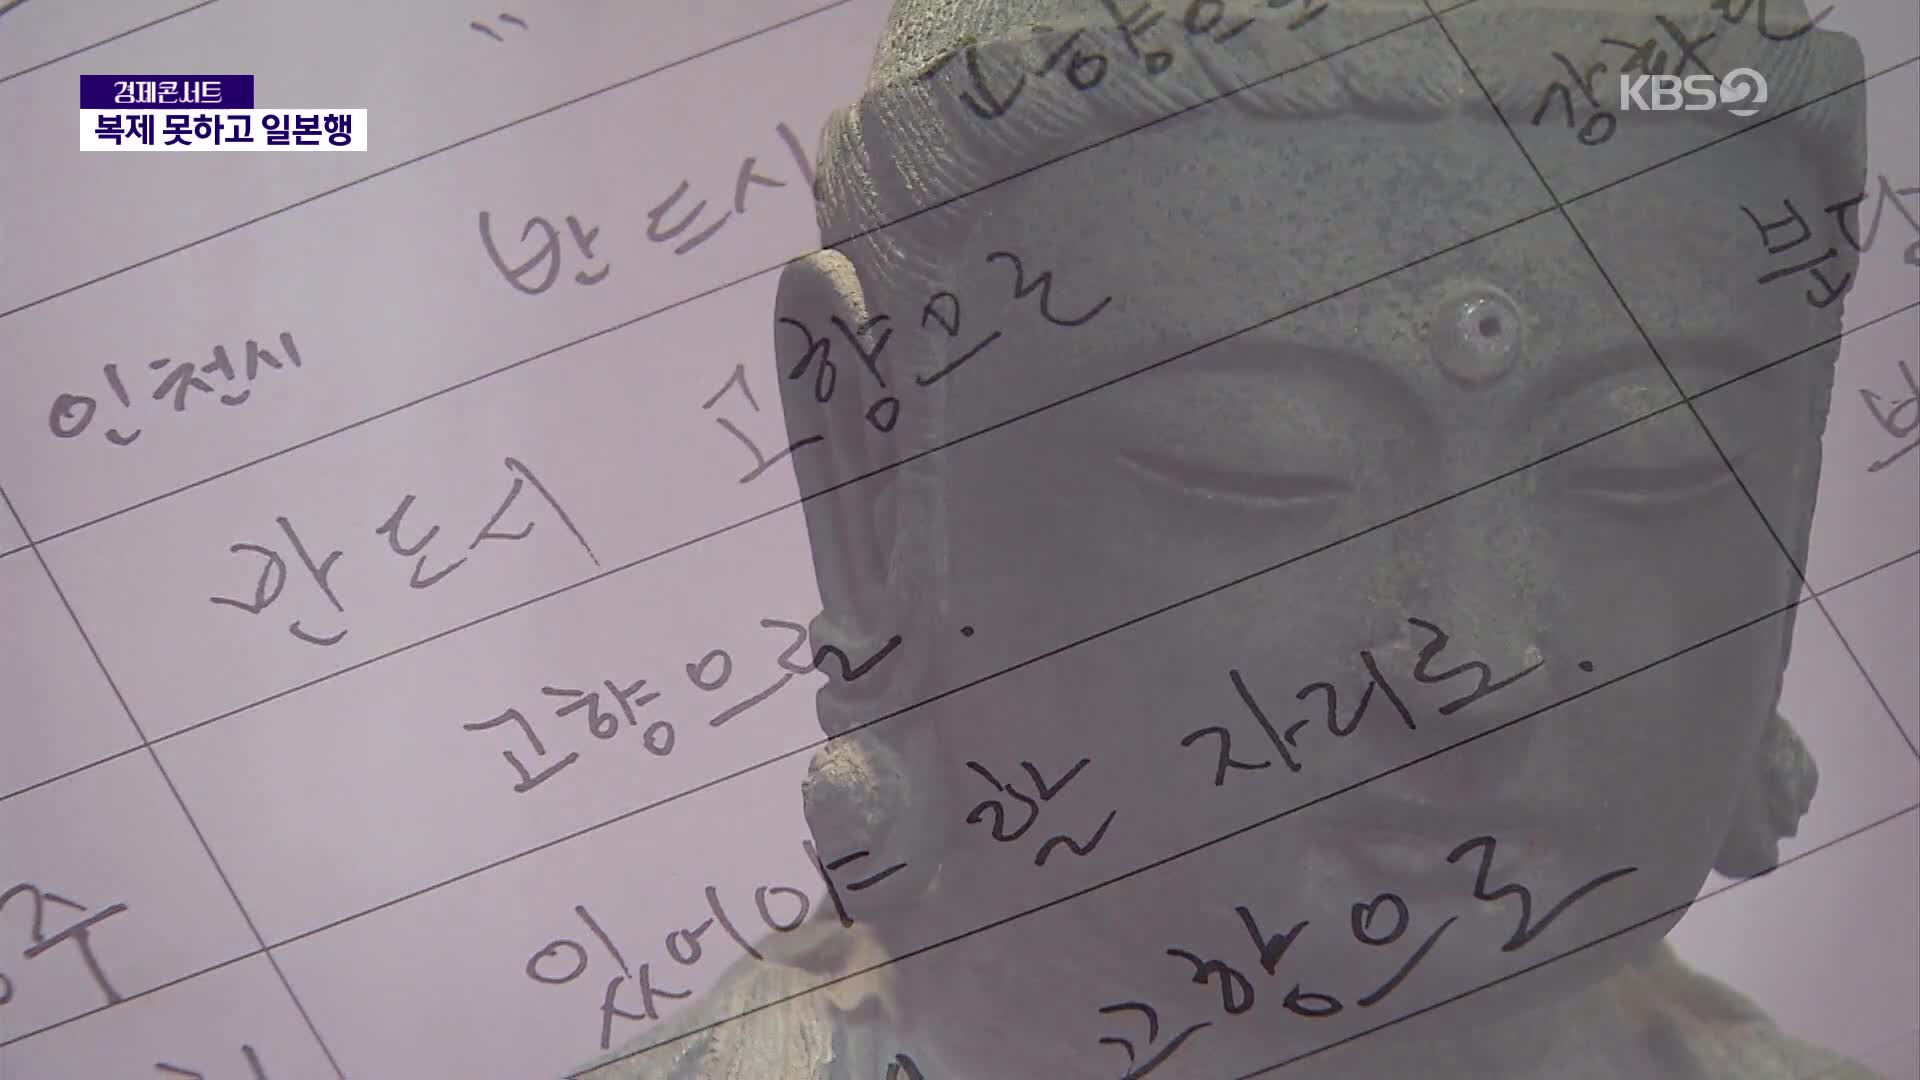 경제콘서트
복제 못하고 일본행
KBS2
고향으로
반드시
인천시
반드시 고향으로
고향으로.
있어야 할 자리로.
고향으로